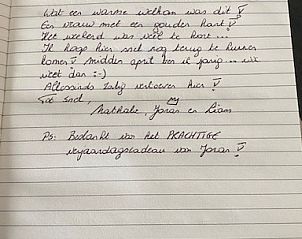 Wat een warme welkom was dit ♡
Een vrouw met een gouden hart ♡
Het weekend was veel te kort...
Ik hoop hier snel nog terug te kunnen
komen ♡ midden april ben ik jarig... wie
weet dan :-)
Allesands zalig vertoeven hier ♡
Tot snel,
Nathalie, Joran en Liam
Ps: Bedankt van het PRACHTIGE
verjaardagscadeau van Joran ♡